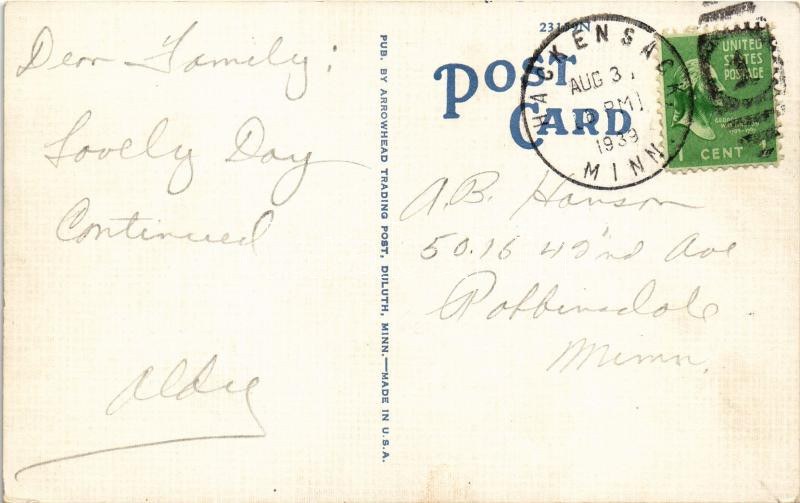 Dear Family;
Lovely Day
Continued
PUB. BY ARROWHEAD TRADING POST, DULUTH, MINN.—MADE IN U.S.A.
POST
CARD
HACKENSACK
AUG 31
PM
1939
MINN
UNITED
STATES
POSTAGE
1 CENT 1
A.B. Hanson
5016 42nd Ave
Robbinsdale
Minn.